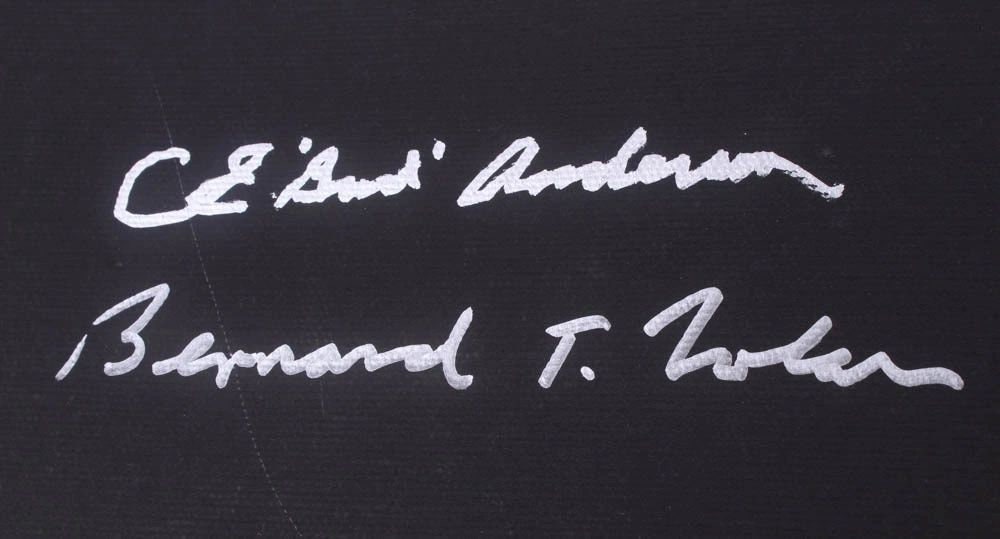 CE "Bud" Anderson
Bernard T. Nolan